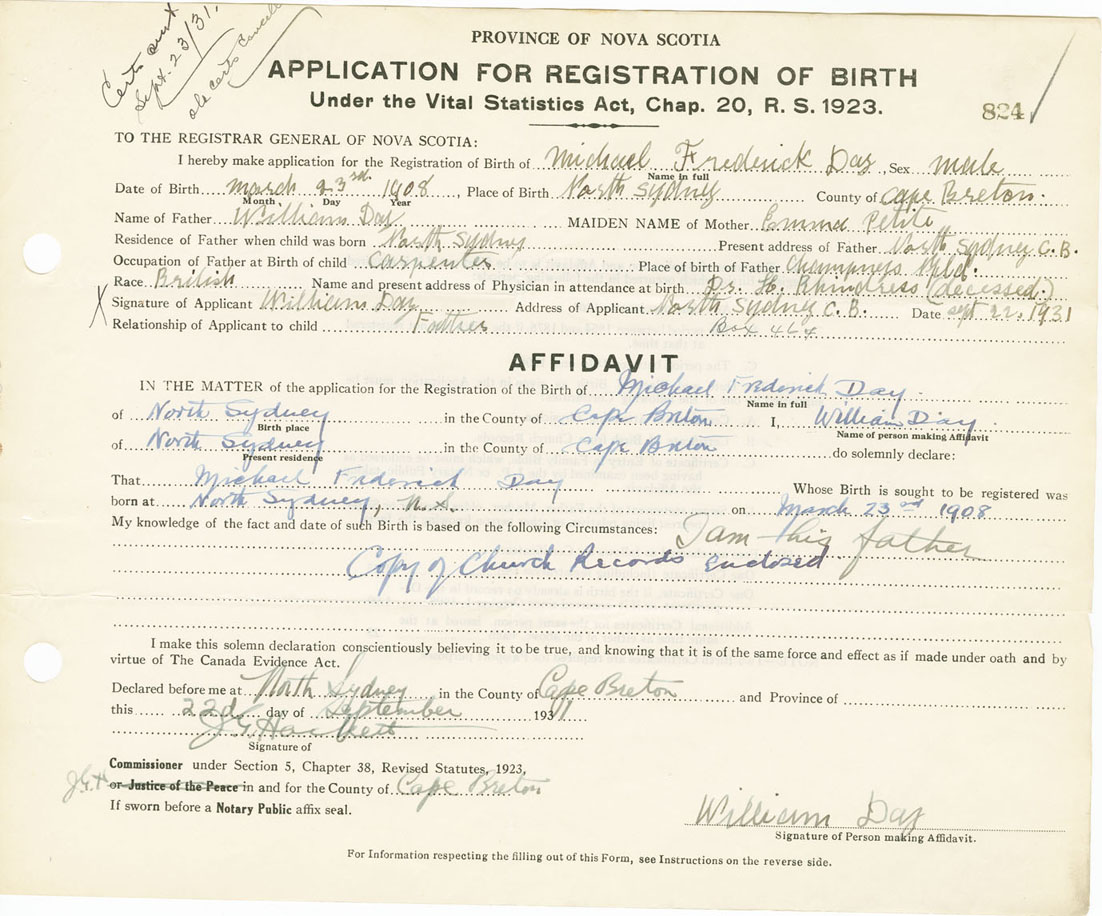 Certs sent
Sept. 23/31.
old certs
PROVINCE OF NOVA SCOTIA
APPLICATION FOR REGISTRATION OF BIRTH
Under the Vital Statistics Act, Chap. 20, R. S. 1923.
824
TO THE REGISTRAR GENERAL OF NOVA SCOTIA:
I hereby make application for the Registration of Birth of Michael Frederick Day, Sex male
Name in full
Date of Birth march 23rd. 1908, Place of Birth North Sydney County of Cape Breton.
Month Day Year
Name of Father William Day MAIDEN NAME of Mother Emma Petite
Residence of Father when child was born North Sydney Present address of Father North Sydney C. B.
Occupation of Father at Birth of child Carpenter Place of birth of Father Nfld.
Race British Name and present address of Physician in attendance at birth Dr. H. (decessed.)
X Signature of Applicant William Day Address of Applicant North Sydney C. B. Date Sept 22. 1931
Relationship of Applicant to child Father Box 464
AFFIDAVIT
IN THE MATTER of the application for the Registration of the Birth of Michael Frederick Day
Name in full
of North Sydney in the County of Cape Breton I, William Day
Birth place Name of person making Affidavit
of North Sydney in the County of Cape Breton do solemnly declare:
Present residence
That Michael Frederick Day Whose Birth is sought to be registered was
born at North Sydney, N.S. on March 23rd 1908
My knowledge of the fact and date of such Birth is based on the following Circumstances: I am his father
Copy of Church Records enclosed
I make this solemn declaration conscientiously believing it to be true, and knowing that it is of the same force and effect as if made under oath and by
virtue of The Canada Evidence Act.
Declared before me at North Sydney in the County of Cape Breton and Province of
this 22d day of September 1931
J G Hackett
Signature of
Commissioner under Section 5, Chapter 38, Revised Statutes, 1923,
J.G.H or Justice of the Peace in and for the County of Cape Breton
If sworn before a Notary Public affix seal.
William Day
Signature of Person making Affidavit.
For Information respecting the filling out of this Form, see Instructions on the reverse side.